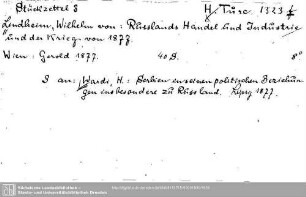 Stückzettel S
H. Turc. 1323 f
Lindheim, Wilhelm von: Russlands Handel und Industrie
und der Krieg von 1877.
Wien: Gerold 1877. 40 S. 8°
S an: Wardi, H.: Serbien in seinen politischen Beziehun-
gen insbesondere zu Russland. Leipzg 1877.
Sächsische Landesbibliothek -
Staats- und Universitätsbibliothek Dresden